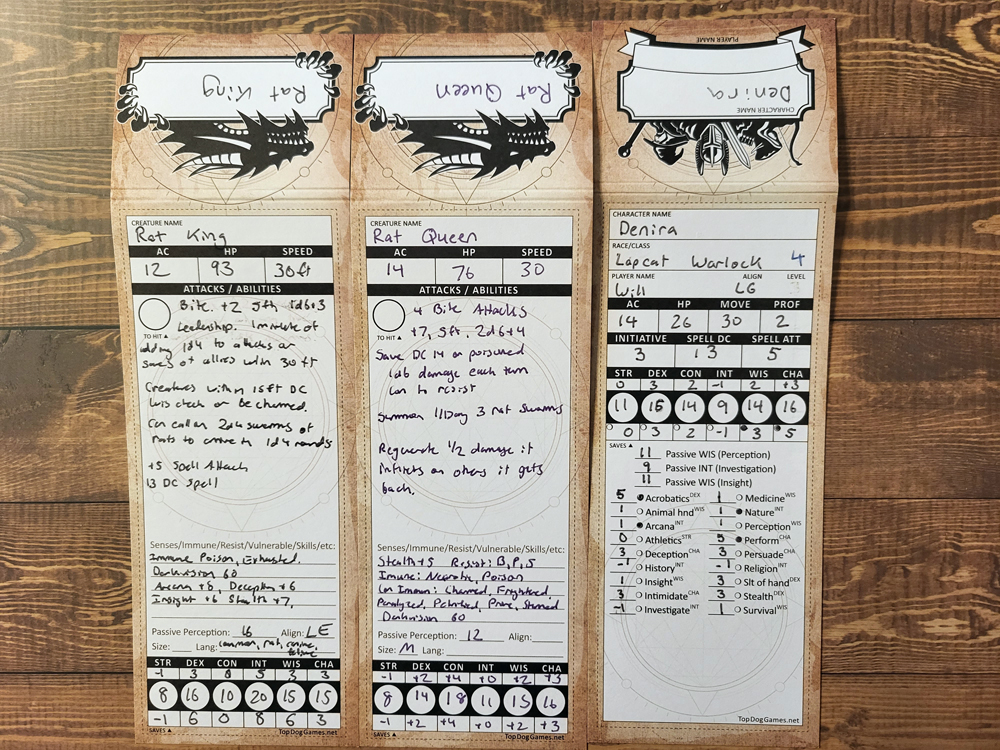 Rat King
CREATURE NAME
Rat King
AC HP SPEED
12 93 30ft
ATTACKS / ABILITIES
TO HIT
Bite +2 5ft 1d6+3
Leadership - Immediate of
adding 1d4 to attacks or
saves of allies with 30 ft
Creatures within 15ft DC
wis check or Be charmed.
Can call on 2d4 swarms of
rats to arrive in 1d4 rounds
+5 Spell Attack
13 DC Spell
Senses/Immune/Resist/Vulnerable/Skills/etc:
Immune Poison, Exhausted.
Darkvision 60
Arcana +8, Deception +6
Insight +6 Stealth +7,
Passive Perception: 16 Align: LE
Size: Lang: common, rat, canine,
STR DEX CON INT WIS CHA
-1 3 0 5 3 3
8 16 10 20 15 15
-1 6 0 8 6 3
SAVES
TopDogGames.net
Rat Queen
CREATURE NAME
Rat Queen
AC HP SPEED
14 76 30
ATTACKS / ABILITIES
TO HIT
4 Bite Attacks
+7, 5ft, 2d6+4
Save DC 14 or poisoned
1d6 damage each turn
Con to resist
Summon 1/Day 3 rat swarms
Regenerate 1/2 damage it
inflicts on others it gets
back.
Senses/Immune/Resist/Vulnerable/Skills/etc:
Stealth +5 Resist: B, P, S
Imune: Necrotic, Poison
Con Immun: Charmed, Frightened,
Paralyzed, Petrified, Prone, Stunned
Darkvision 60
Passive Perception: 12 Align:
Size: M Lang:
STR DEX CON INT WIS CHA
-1 +2 +4 +0 +2 +3
8 14 18 11 15 16
-1 +2 +4 +0 +2 +3
SAVES
TopDogGames.net
PLAYER NAME
Denira
CHARACTER NAME
CHARACTER NAME
Denira
RACE/CLASS
Lapcat Warlock 4
PLAYER NAME ALIGN LEVEL
Will LG 3
AC HP MOVE PROF
14 26 30 2
INITIATIVE SPELL DC SPELL ATT
3 13 5
STR DEX CON INT WIS CHA
0 3 2 -1 2 +3
11 15 14 9 14 16
0 3 2 -1 3 5
SAVES
11 Passive WIS (Perception)
9 Passive INT (Investigation)
11 Passive WIS (Insight)
5 Acrobatics DEX 1 Medicine WIS
1 Animal hnd WIS 1 Nature INT
1 Arcana INT 1 Perception WIS
0 Athletics STR 5 Perform CHA
3 Deception CHA 3 Persuade CHA
-1 History INT -1 Religion INT
1 Insight WIS 3 Slt of hand DEX
3 Intimidate CHA 3 Stealth DEX
-1 Investigate INT 1 Survival WIS
TopDogGames.net